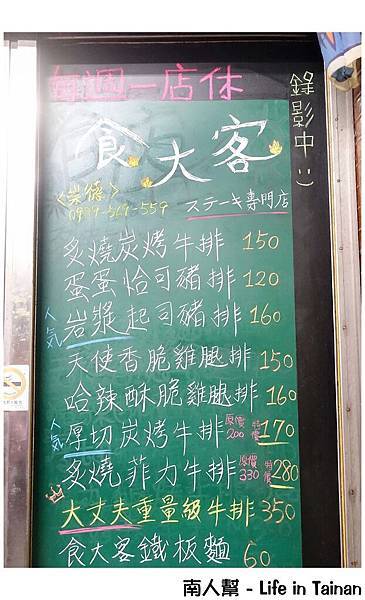 每週一店休
錄影中 :)
食大客
<崇德>
ステーキ專門店
炙燒炭烤牛排 150
蛋蛋恰司豬排 120
人氣 岩漿起司豬排 160
天使香脆雞腿排 150
哈辣酥脆雞腿排 160
人氣 厚切炭烤牛排 原價200 特價170
炙燒菲力牛排 原價330 特價280
大丈夫重量級牛排 350
食大客鐵板麵 60
南人幫 - Life in Tainan